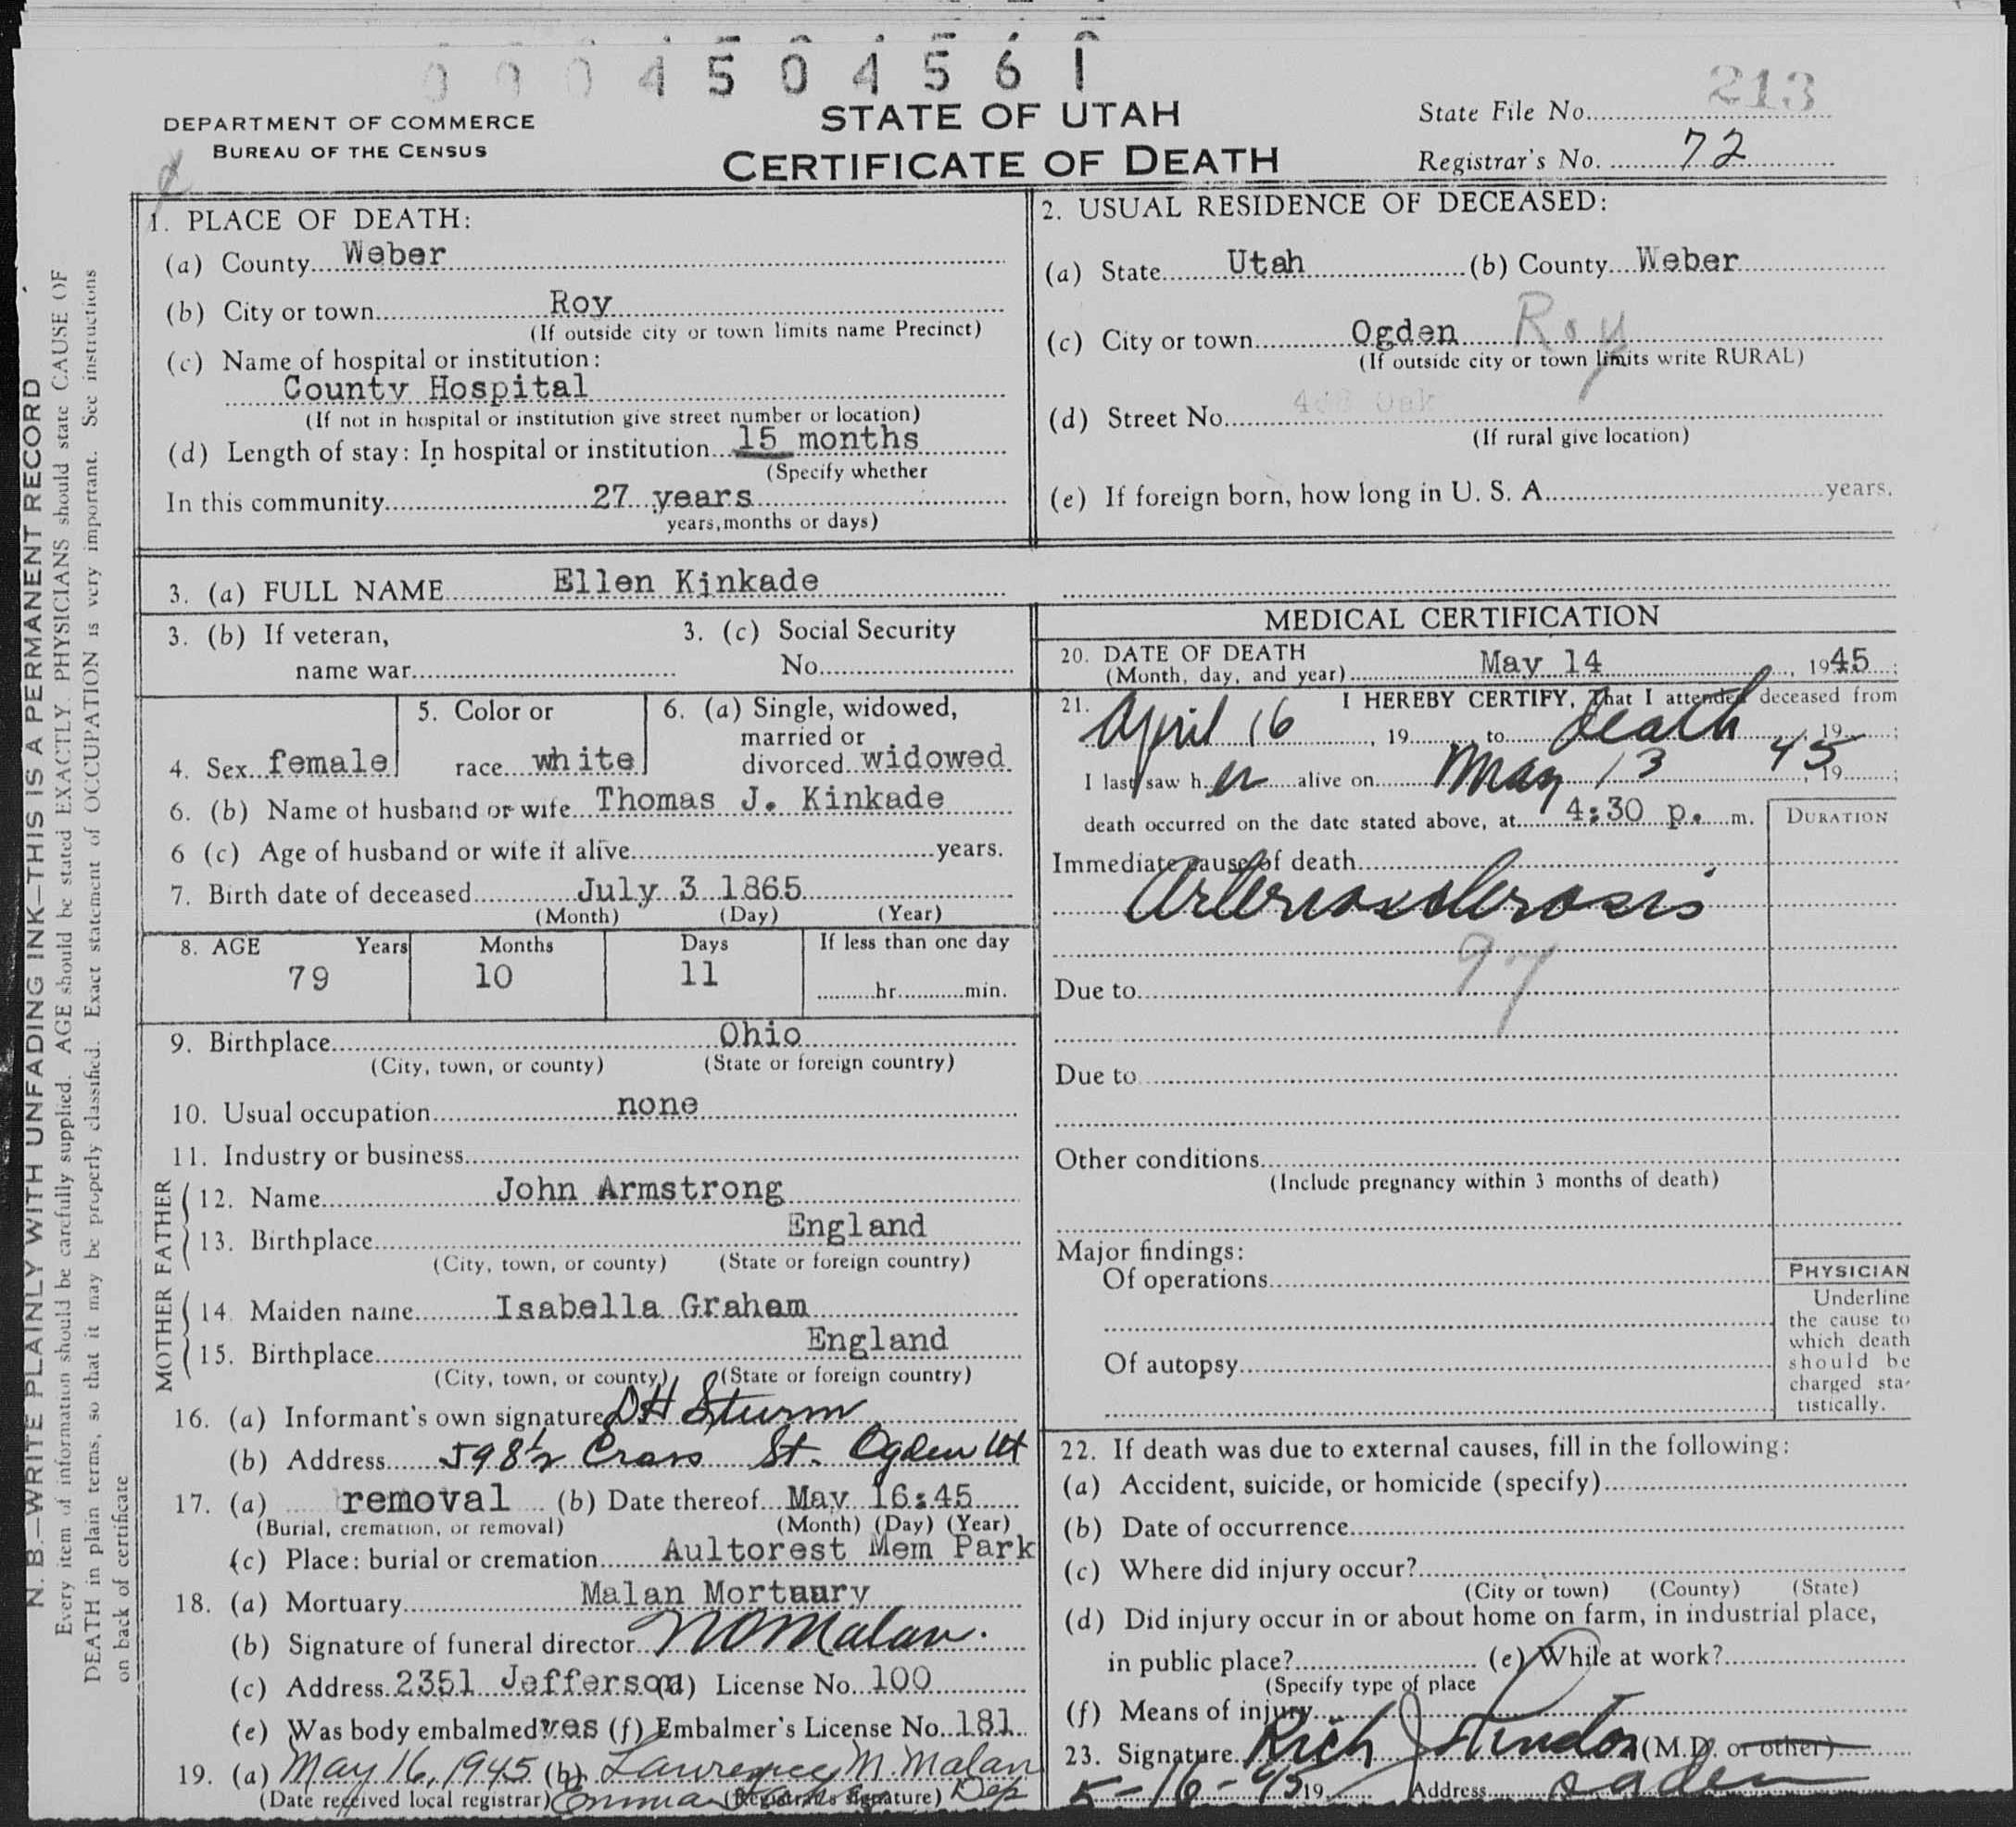 0 0 0 4 5 0 4 5 6 1
213
DEPARTMENT OF COMMERCE
BUREAU OF THE CENSUS
STATE OF UTAH
CERTIFICATE OF DEATH
State File No.
Registrar's No. 72
1. PLACE OF DEATH:
(a) County Weber
(b) City or town Roy
(If outside city or town limits name Precinct)
(c) Name of hospital or institution:
County Hospital
(If not in hospital or institution give street number or location)
(d) Length of stay: In hospital or institution 15 months
(Specify whether
In this community 27 years
years, months or days)
2. USUAL RESIDENCE OF DECEASED:
(a) State Utah (b) County Weber
(c) City or town Ogden Roy
(If outside city or town limits write RURAL)
(d) Street No. Oak
(If rural give location)
(e) If foreign born, how long in U. S. A. years.
3. (a) FULL NAME Ellen Kinkade
3. (b) If veteran,
name war
3. (c) Social Security
No.
4. Sex female
5. Color or
race white
6. (a) Single, widowed,
married or
divorced widowed
6. (b) Name of husband or wife Thomas J. Kinkade
6 (c) Age of husband or wife if alive years.
7. Birth date of deceased July 3 1865
(Month) (Day) (Year)
8. AGE Years Months Days If less than one day
79 10 11 hr. min.
9. Birthplace Ohio
(City, town, or county) (State or foreign country)
10. Usual occupation none
11. Industry or business
FATHER
12. Name John Armstrong
13. Birthplace England
(City, town, or county) (State or foreign country)
MOTHER
14. Maiden name Isabella Graham
15. Birthplace England
(City, town, or county) (State or foreign country)
16. (a) Informant's own signature D H Sturm
(b) Address 598½ Cross St. Ogden Ut
17. (a) removal (b) Date thereof May 16:45
(Burial, cremation, or removal) (Month) (Day) (Year)
(c) Place: burial or cremation Aultorest Mem Park
18. (a) Mortuary Malan Mortuary
(b) Signature of funeral director N O Malan.
(c) Address 2351 Jefferson (d) License No. 100
(e) Was body embalmed yes (f) Embalmer's License No. 181
19. (a) May 16, 1945 (b) Lawrence M. Malan
(Date received local registrar) Emma (Registrar's signature) Dep
MEDICAL CERTIFICATION
20. DATE OF DEATH
(Month, day, and year) May 14, 1945;
21. I HEREBY CERTIFY, That I attended deceased from
April 16, 19 to death, 19 ;
I last saw her alive on May 13 45, 19 ;
death occurred on the date stated above, at 4:30 p. m.
DURATION
Immediate cause of death
Arteriosclerosis
97
Due to
Due to
Other conditions
(Include pregnancy within 3 months of death)
Major findings:
Of operations
Of autopsy
PHYSICIAN
Underline
the cause to
which death
should be
charged sta-
tistically.
22. If death was due to external causes, fill in the following:
(a) Accident, suicide, or homicide (specify)
(b) Date of occurrence
(c) Where did injury occur?
(City or town) (County) (State)
(d) Did injury occur in or about home on farm, in industrial place,
in public place? (e) While at work?
(Specify type of place
(f) Means of injury
23. Signature Rich J (M.D. or other)
5-16-45 19 Address Ogden
N. B.—WRITE PLAINLY WITH UNFADING INK—THIS IS A PERMANENT RECORD
Every item of information should be carefully supplied. AGE should be stated EXACTLY. PHYSICIANS should state CAUSE OF
DEATH in plain terms, so that it may be properly classified. Exact statement of OCCUPATION is very important. See instructions
on back of certificate